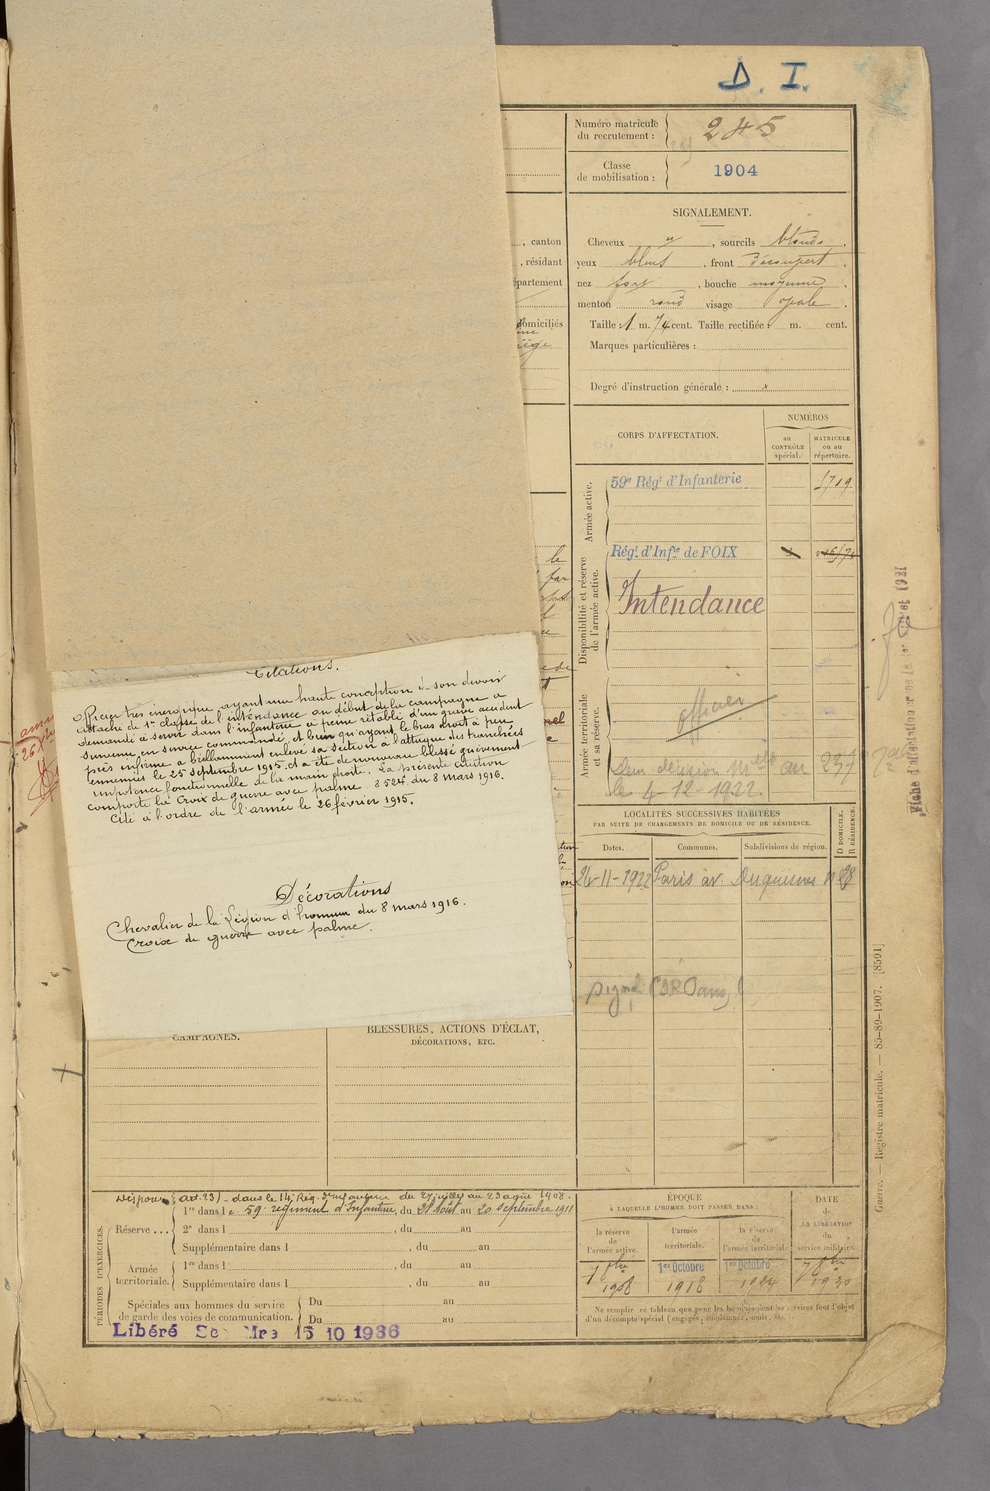 D. I.
Numéro matricule
du recrutement : 245
Classe
de mobilisation : 1904
SIGNALEMENT.
, canton
Cheveux , sourcils blonds .
, résidant
yeux bleus , front découvert .
épartement
nez fort , bouche moyenne .
menton rond visage ovale .
domiciliés
Taille : 1 m. 74 cent. Taille rectifiée : m. cent.
Marques particulières :
Degré d'instruction générale :
CORPS D'AFFECTATION.
NUMÉROS
au
CONTRÔLE
spécial.
MATRICULE
ou au
répertoire.
Armée active.
59e Régt d'Infanterie
Disponibilité et réserve
de l'armée active.
Régt. d'Infie de FOIX
Intendance
Armée territoriale
et sa réserve.
officier
décision au 237
le 4-12-1922
Citations.
Officier très énergique ayant une haute conception de son devoir
attaché de 1re classe de l'intendance au début de la campagne a
demandé à servir dans l'infanterie à peine rétabli d'un grave accident
survenu en service commandé, et bien qu'ayant le bras droit à peu
près infirme a brillamment enlevé sa section à l'attaque des tranchées
ennemies le 25 septembre 1915, et a été de nouveau blessé grièvement
impotence fonctionnelle de la main droite. La présente citation
comporte la Croix de guerre avec palme. 8524 du 8 mars 1916.
Cité à l'ordre de l'armée le 26 février 1915.
Décorations
Chevalier de la Légion d'honneur du 8 mars 1916.
Croix de guerre avec palme.
LOCALITÉS SUCCESSIVES HABITÉES
PAR SUITE DE CHANGEMENTS DE DOMICILE OU DE RÉSIDENCE.
Dates.
Communes.
Subdivisions de région.
D DOMICILE.
R RÉSIDENCE.
26-11-1922 Paris av. Duquesne No 28
CAMPAGNES.
BLESSURES, ACTIONS D'ÉCLAT,
DÉCORATIONS, ETC.
PÉRIODES D'EXERCICES.
art. 23) - dans le 14e Rég. d'infanterie du 27 juillet au 23 août 1908.
Réserve ...
1re dans le 59e régiment d'Infanterie, du 29 août au 20 septembre 1911
2e dans l , du au
Supplémentaire dans l , du au
Armée
territoriale.
1re dans l , du au
Supplémentaire dans l , du au
Spéciales aux hommes du service
de garde des voies de communication.
Du au
Du au
Libéré 15 10 1936
ÉPOQUE
À LAQUELLE L'HOMME DOIT PASSER DANS :
la réserve
de
l'armée active.
l'armée
territoriale.
la réserve
de
l'armée territorial.
DATE
de
LA LIBÉRATION
du
service militaire.
1908
1er Octobre
1918
1er Octobre
1924
Ne remplir ce tableau que pour les hommes dont les services font l'objet
d'un décompte spécial (engagés, omis, etc.)
Guerre. — Registre matricule. — 85-89-1907. [8591]